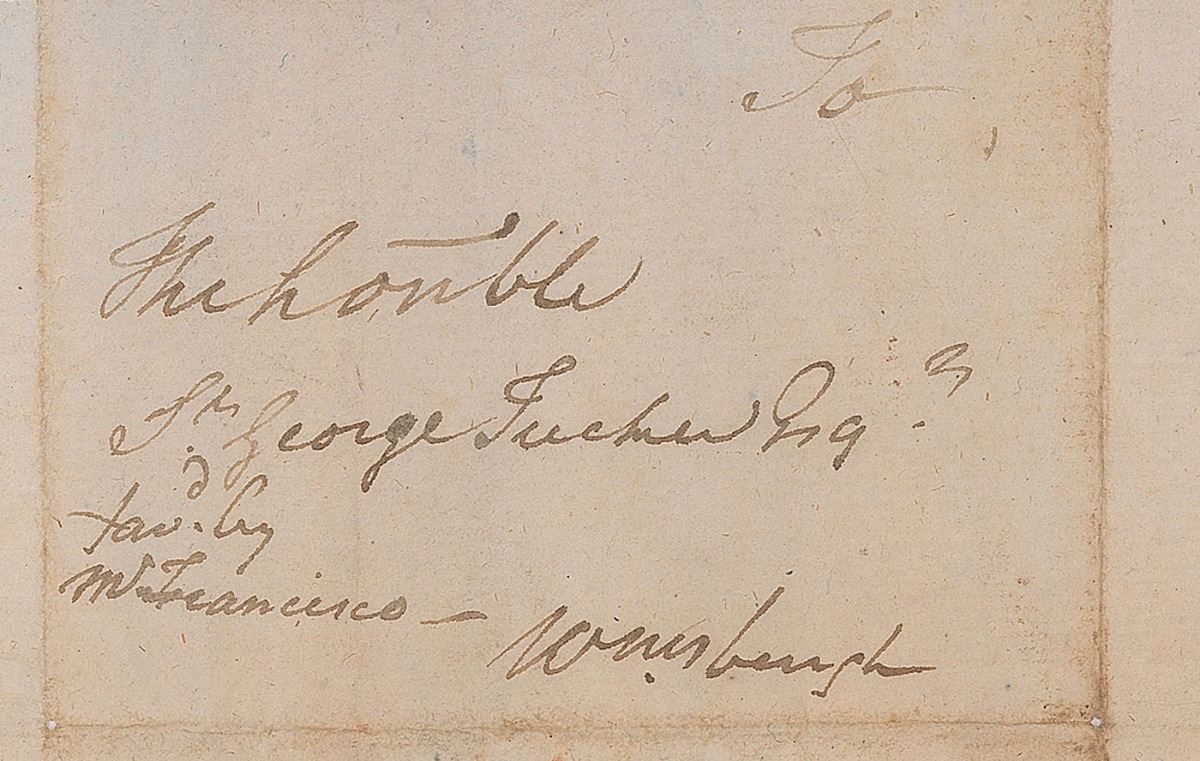 To,
The hon̄ble
St. George Tucker Esqr.
favd. by
Mr Francisco —
Wmsburgh